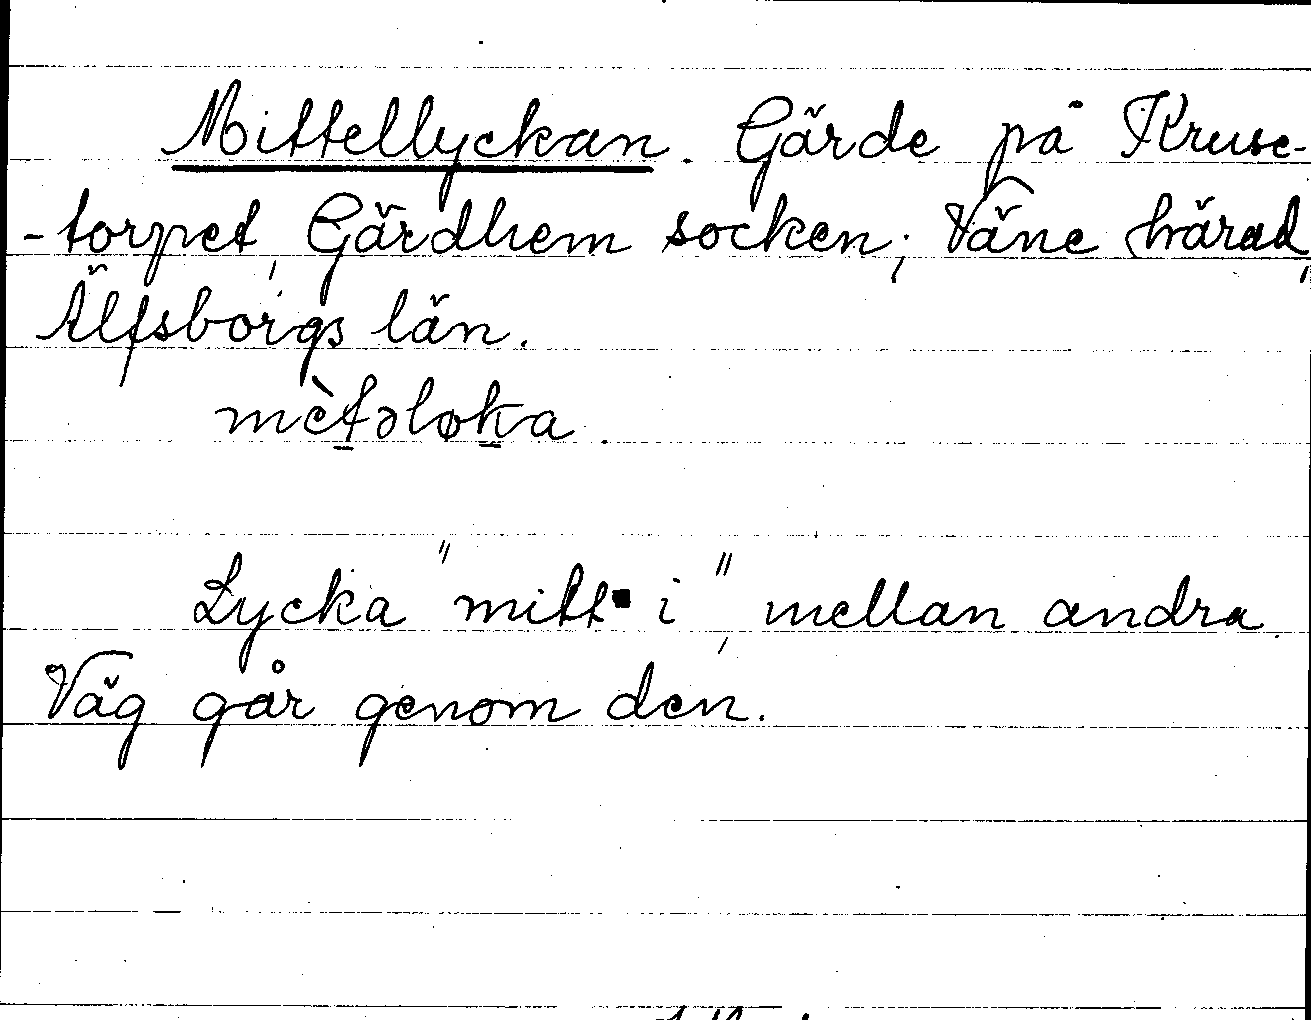 Mittellyckan. Gärde på Kruse-
-torpet, Gärdhem socken; Väne härad,
Älfsborgs län.
mèt̲əløk̲a.
Lycka "mitt i", mellan andra.
Väg går genom den.